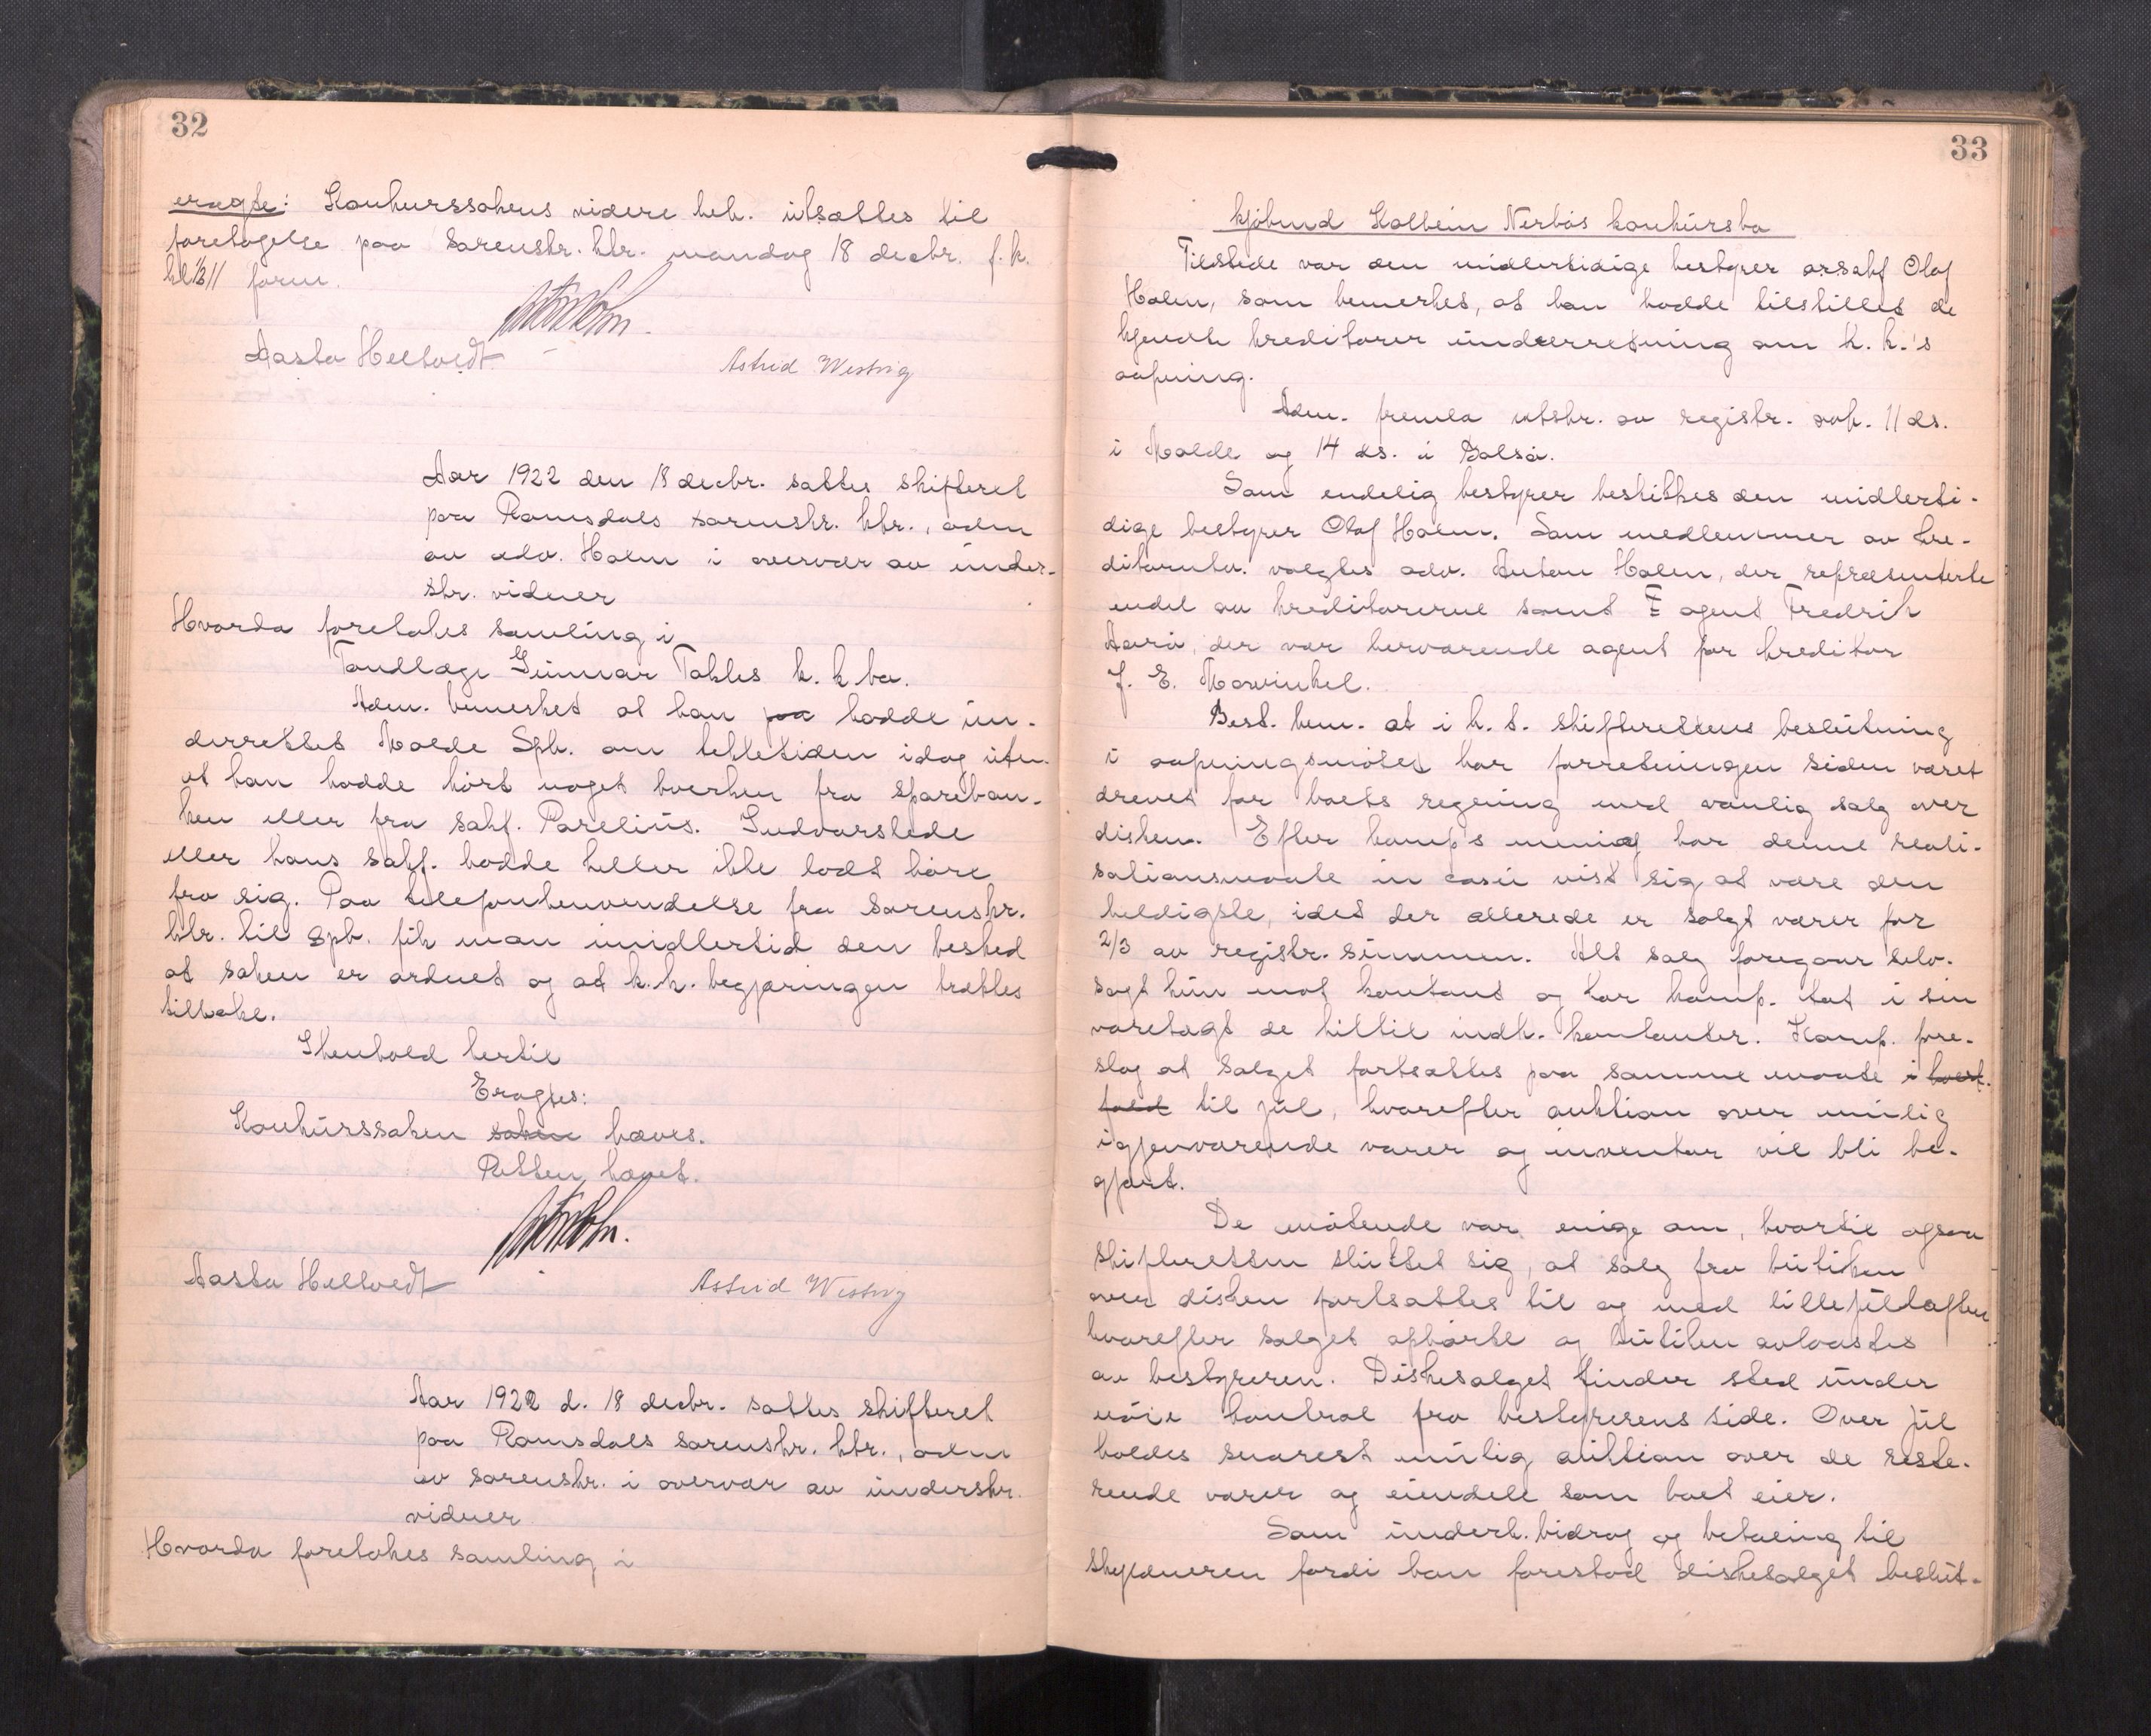 32
eragte: Konkurssakens videre beh. utsættes til
foretagelse paa sorenskr. ktr. mandag 18 decbr. f. k.
kl ½11 form.
Aasta Heltvedt Astrid Westvig
Aar 1922 den 18 decbr. sattes skifteret
paa Romsdals sorenskr. ktr., adm
av adv. Holm i overvær av under-
skr. vidner
Hvorda foretokes samling i
Tandlæge Gunnar Takles k. k. bo.
Adm. bemerket at han paa hadde un-
derrettet Molde Spb. om tektetiden idag uten
at han hadde hørt noget hverken fra spareban-
ken eller fra sakf. Parelius. Indvarslede
eller hans sakf. hadde heller ikke ladt høre
fra sig. Paa telefonhenvendelse fra sorenskr.
ktr. til Spb. fik man imidlertid den besked
at saken er ordnet og at k.k. begjæringen trættes
tilbake.
I henhold hertil
Eragtes:
Konkurssaken saken hæves.
Retten hævet.
Aasta Heltvedt Astrid Westvig
Aar 1922 d. 18 decbr. sattes skifteret
paa Romsdals sorenskr. ktr., adm
av sorenskr. i overvær av underskr.
vidner
Hvorda foretokes samling i
33
kjøbmd Kolbein Nerbøs konkursbo
Tilstede var den midlertidige bestyrer orsakf Olaf
Holm, som bemerket, at han hadde tilstillet de
kjendte kreditorer underretning om k. k.'s
aapning.
Adm. fremla utskr. av registr. avh. 11 ds.
i Molde og 14 ds. i Bolsø.
Som endelig bestyrer beskikkes den midlerti-
dige bestyrer Olaf Holm. Som medlemmer av kre-
ditorutv. valgtes adv. Anton Holen, der repræsenterte
endel av kreditorerne samt F agent Fredrik
Aarø, der var herværende agent for kreditor
J. E. Mowinkel.
Best. bem. at i h. t. skifterettens beslutning
i aapningsmøtet har forretningen siden været
drevet for boets regning med vanlig salg over
disken. Efter komp's mening har denne reali-
sationsmaate in casu vist sig at være den
heldigste, idet der allerede er solgt varer for
2/3 av registr. summen. Alt salg foregaar selv-
sagt kun mot kontant og har komp. tat i sin
varetægt de hittil indk. kontanter. Komp. fore-
slog at salget fortsættes paa samme maate i hvert-
fald til jul, hvorefter auktion over mulig
igjenværende varer og inventar vil bli be-
gjært.
De møtende var enige om, hvortil ogsaa
skifteretten sluttet sig, at salg fra butiken
over disken fortsættes til og med lillejulaften
hvorefter salget ophørte og butiken avlaastes
av bestyreren. Diskesalget finder sted under
nøie kontrol fra bestyrerens side. Over jul
holdes snarest mulig auktion over de reste-
rende varer og eiendele som boet eier.
Som underh. bidrag og betaling til
skyldneren fordi han forestod diskesalget beslut-